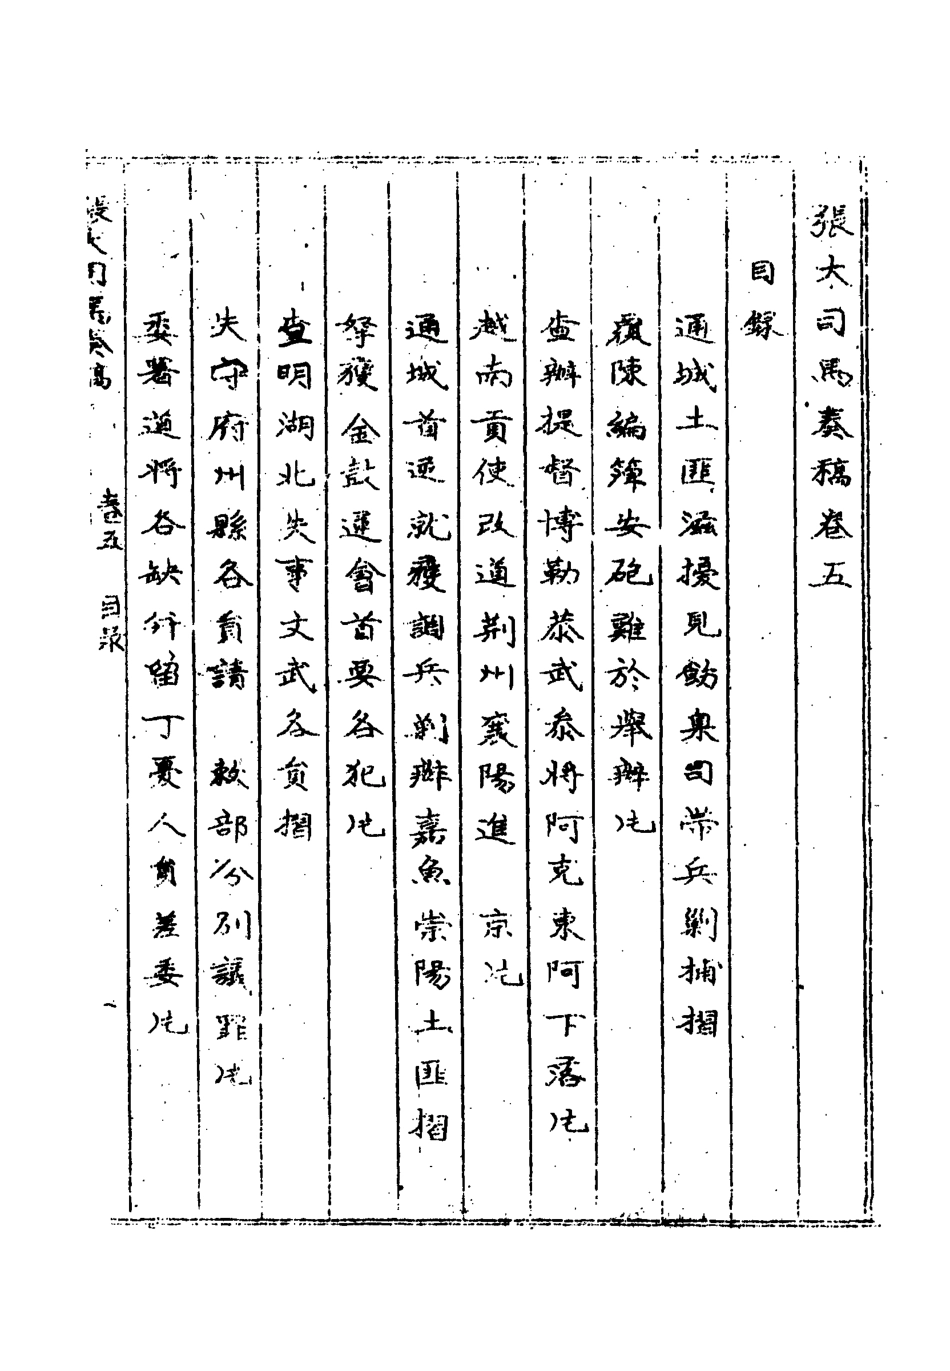 張大司馬奏稿卷五
目錄
通城土匪滋擾見飭臬司帶兵剿捕摺
覆陳編籜安砲難於舉辦片
查辦提督博勒恭武叅將阿克東阿下落片
越南貢使改道荆州襄陽進 京片
通城首逆就獲調兵剿辦嘉魚崇陽土匪摺
拏獲金鼓逆會首要各犯片
查明湖北失事文武各員摺
失守府州縣各員請 敕部分別議罪片
委署道將各缺並留丁憂人員差委片
張大司馬奏稿 卷五 目录 一